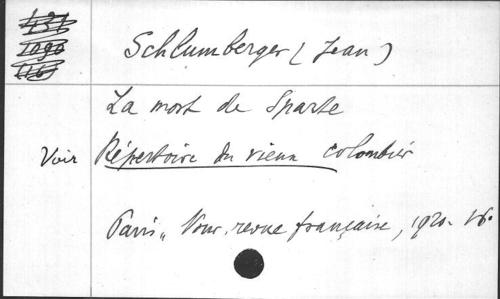 Schlumberger (Jean)
La mort de Sparte
Voir Répertoire du vieux colombier
Paris, Nouv. revue française, 1920. 16°